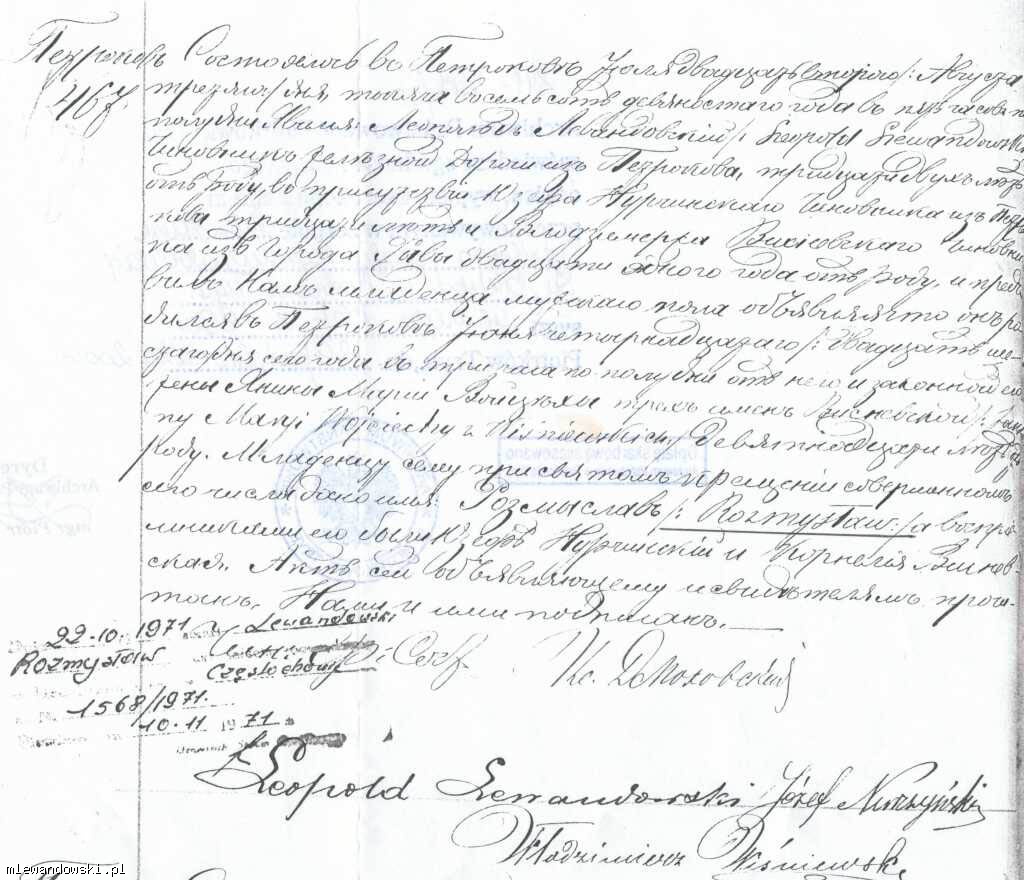 Петроковъ Состоялось въ Петроковѣ Іюля двадцать втораго /: Августа
467. третьяго / дня, тысяча восемьсотъ девяностаго года въ часовъ по
полудни Явился Леопольдъ Левандовскій /: Leopold Lewandowski
Чиновникъ желѣзной дороги изъ Петрокова, тридцати двухъ лѣтъ
отъ роду, въ присутствіи Юзефа Нурчинскаго чиновника изъ Петро
кова тридцати лѣтъ и Володзимержа Висновскаго чиновни
ка изъ города Равы двадцати одного года отъ роду, и предъя
вилъ Намъ младенца мужскаго пола объявляя что онъ ро
дился въ Петроковѣ Іюня четырнадцатаго /: двадцать ше-
стаго дня сего года въ три часа по полудни отъ него и законной его
жены Янины Маріи Войцѣхи трехъ именъ Висневской /: Jani
ny Maryi Wojciechy z Wiśniewskich, девятнадцати лѣтъ отъ
роду. Младенцу сему при святомъ крещеніи совершенномъ
сего числа дано имя: Розмыславъ /: Rozmysław: / а воспрі-
емниками его были Юзефъ Нурчинскій и Корнелія Виснев-
ская. Актъ сей объявляющему и свидѣтелямъ прочи-
танъ, Нами и ими подписанъ.
22-10. 1971 Lewandowski
Rozmysław
Częstochowy
1568/1971.
10.11 1971
Кс.
Leopold Lewandowski Józef Nurczyński
Włodzimierz Wiśniewski
mlewandowski.pl